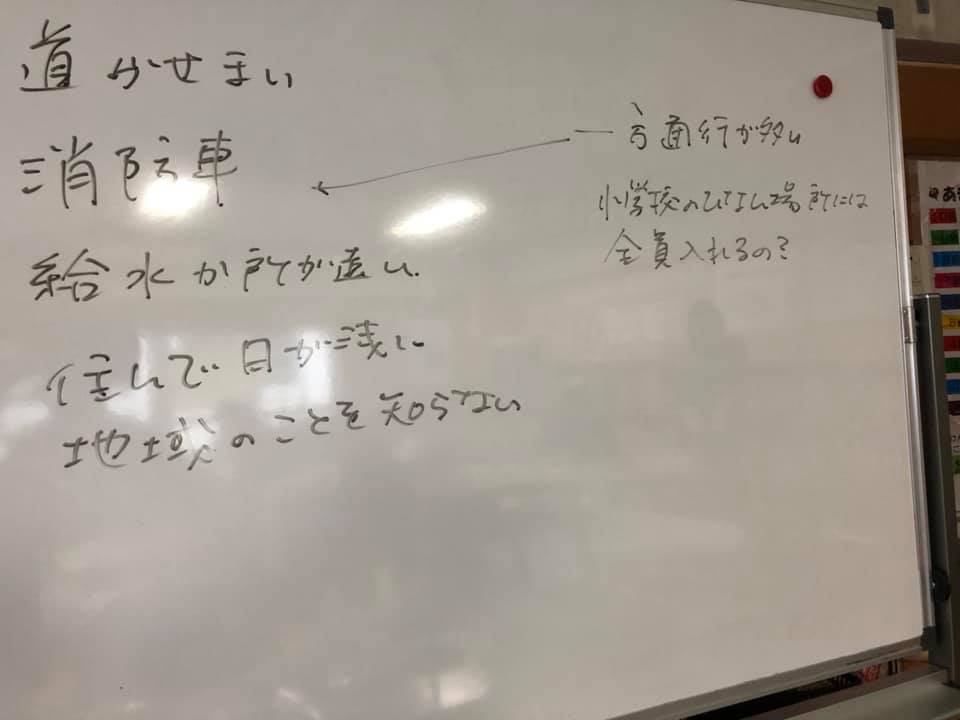 道がせまい
消防車
給水か所が遠い
住んで日が浅い
地域のことを知らない
一方通行が多い
小学校のひなん場所には
全員入れるの?